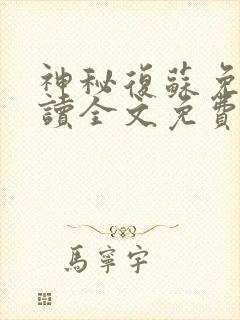 神秘復蘇免
讀全文免費
馬寧宇